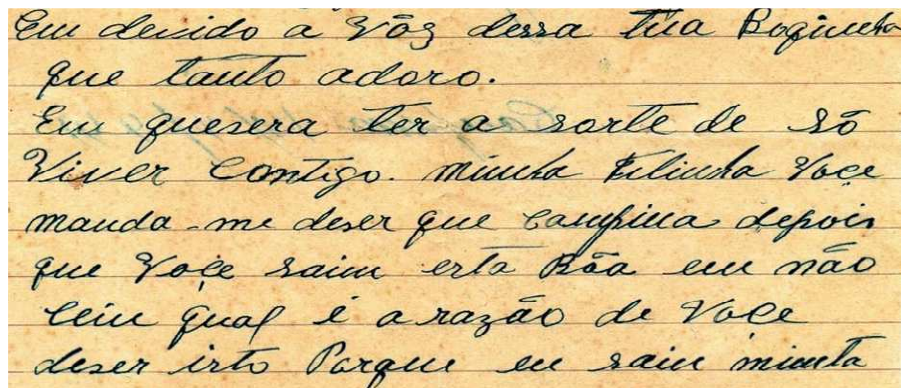 Em devido a Vôz dessa tua Boquinha
que tanto adoro.
Eu quesera ter a sorte de Só
Viver Contigo. minha Filinha Voce
manda-me deser que Campina depois
que Voçe saiu esta Bôa eu não
Ceiu qual é a razão de Voçe
deser isto Porque eu saiu minha